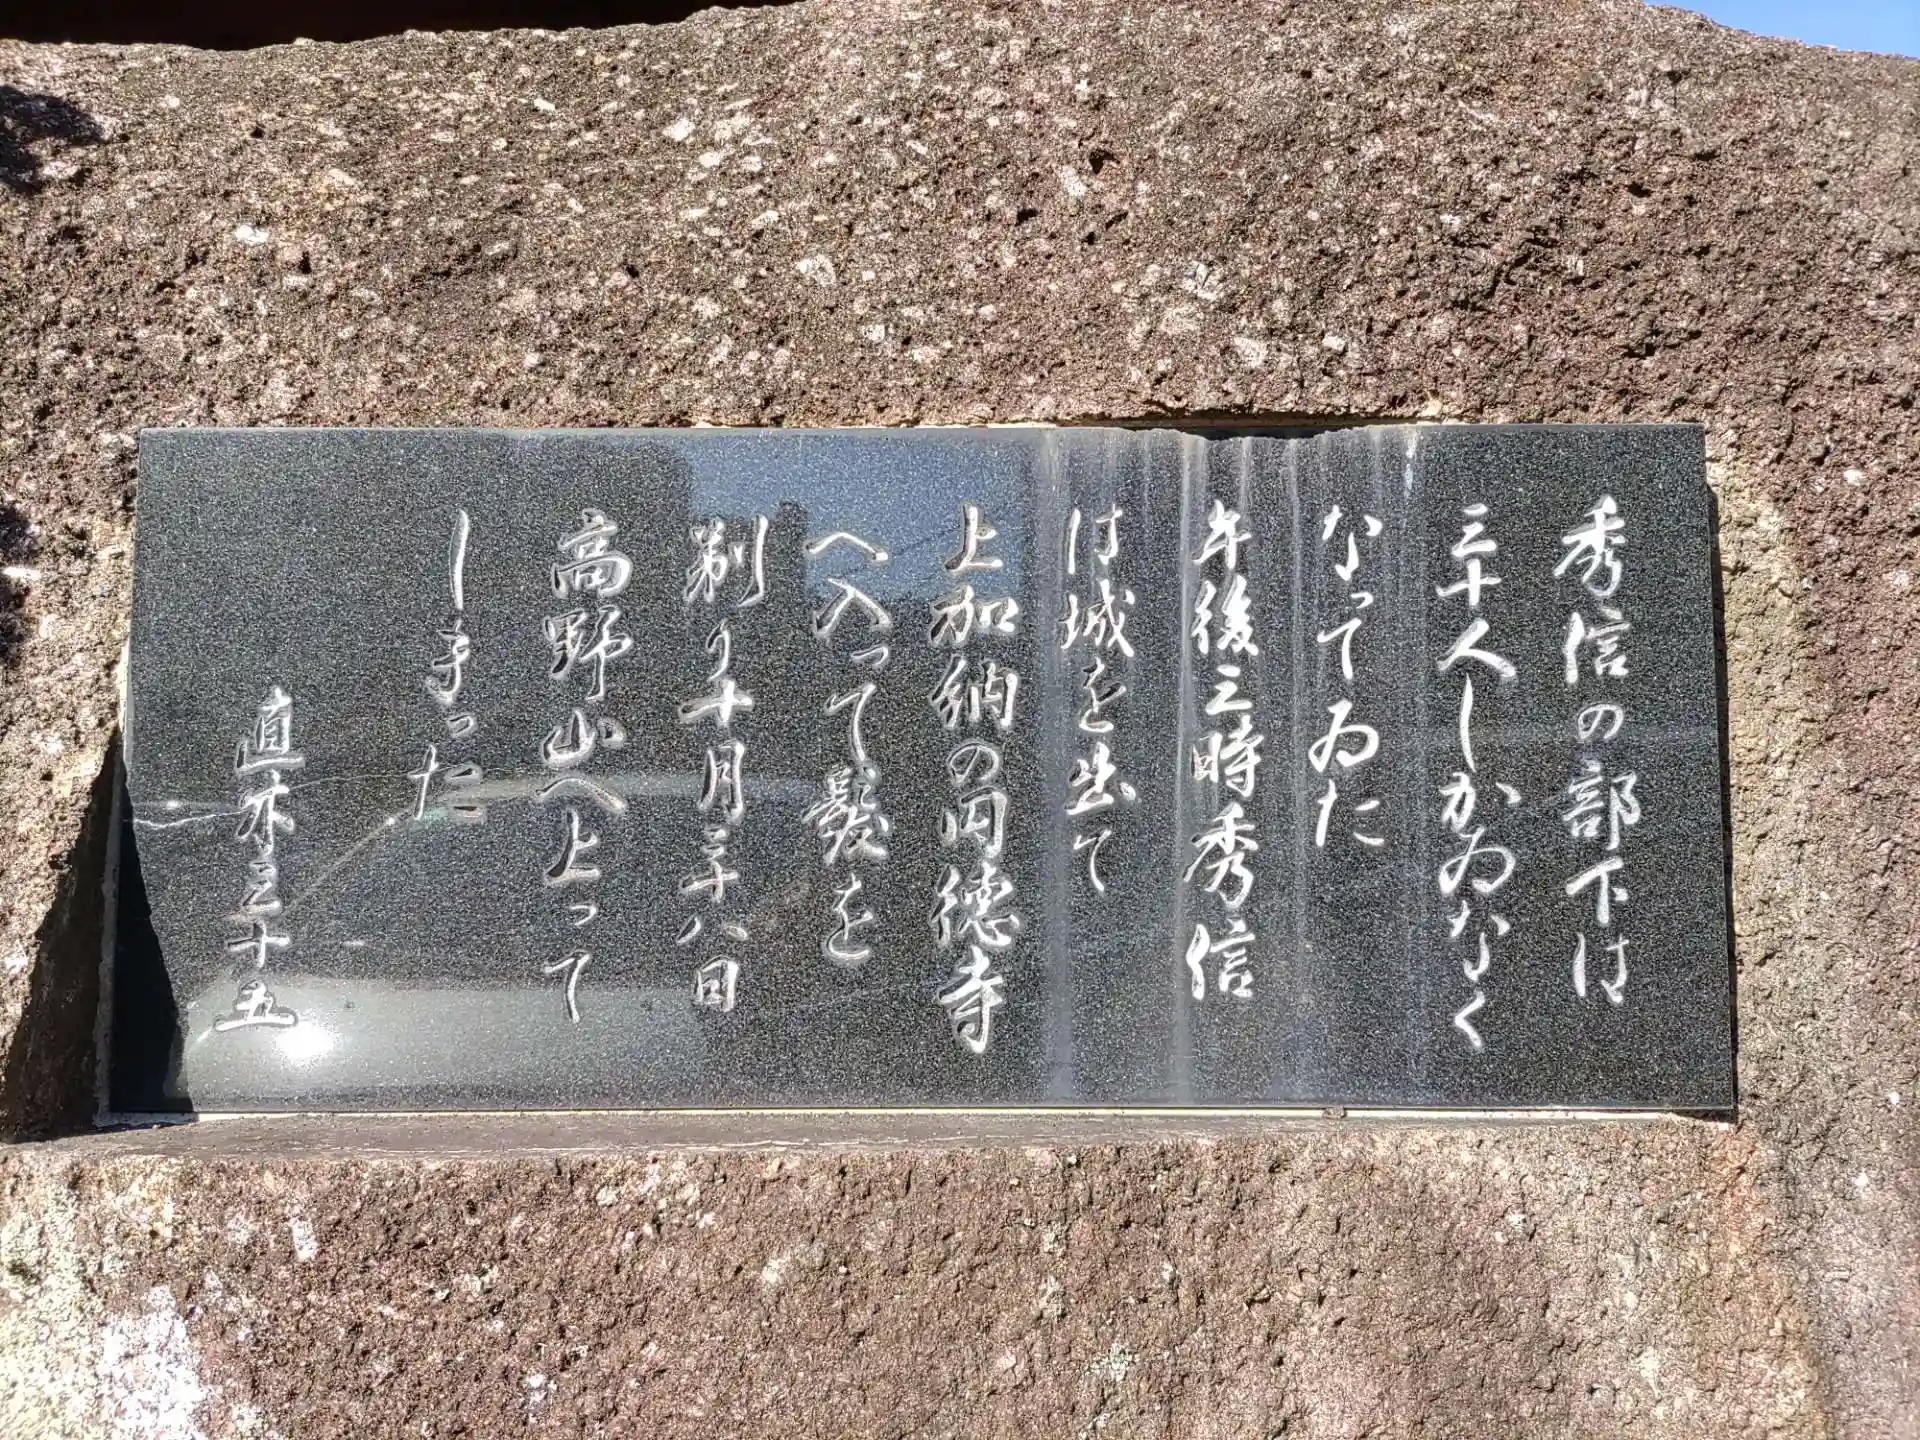 秀信の部下は
三十人しかゐなく
なってゐた
午後三時秀信
は城を出て
上加納の円徳寺
へ入って髪を
剃り十月二十八日
高野山へ上って
しまった
直木三十五